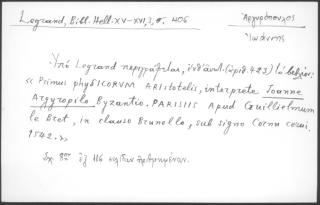 Legrand, Bibl. Hell. XV-XVI, 3, σ. 406
Ἀργυρόπουλος
Ἰωάννης
Ὑπὸ Legrand περιγράφεται, ἐνθ' ἀνωτ. (ἀριθ. 423) τὸ βιβλίον:
« Primus physicorum Aristotelis, interprete Joanne
Argyropilo Byzantio. PARISIIS apud Guillielmum
le Bret, in clauso Brunello, sub signo Cornu cerui.
1542.»
Σχ. 8ον ἐξ 116 σελίδων ἠριθμημένων.